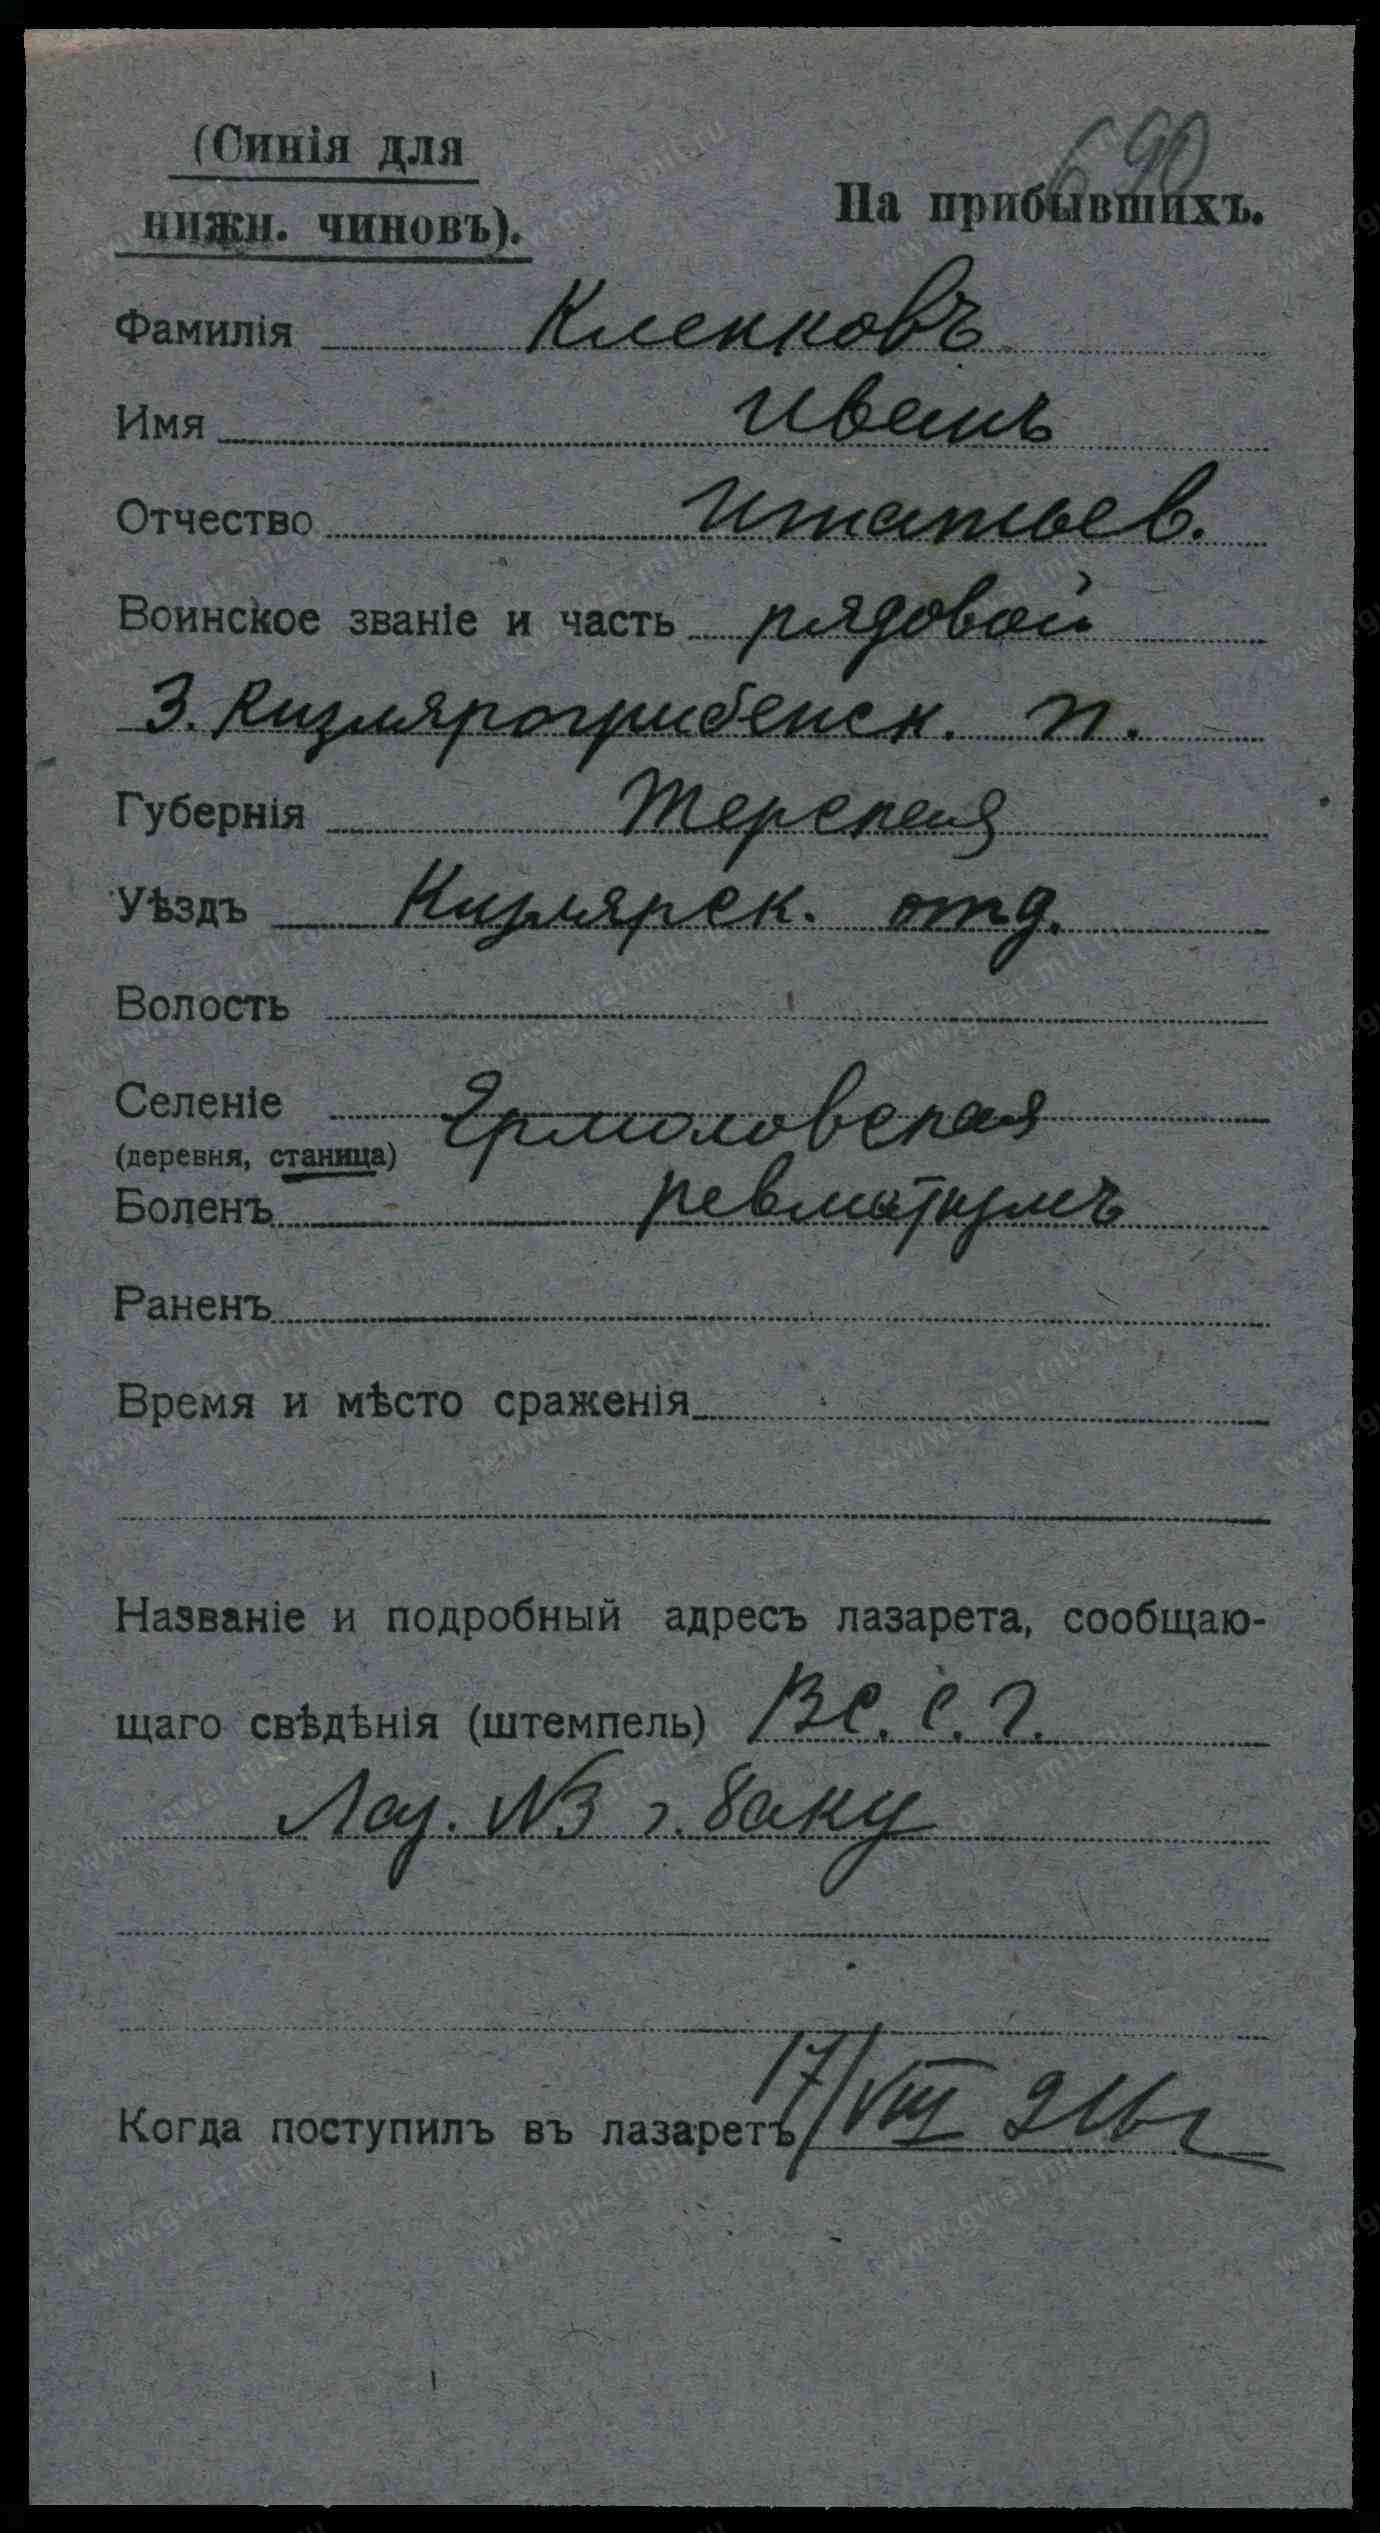 (Синія для
нижн. чиновъ).
690
На прибывшихъ.
Фамилія Кленковъ
Имя Иванъ
Отчество Игнатьев.
Воинское званіе и часть рядовой
3. Кизлярогрибенск. п.
Губернія Терская
Уѣздъ Кизлярск. отд.
Волость
Селеніе Ермоловская
(деревня, станица)
Боленъ ревматизмъ
Раненъ
Время и мѣсто сраженія
Названіе и подробный адресъ лазарета, сообщаю-
щаго свѣдѣнія (штемпель) ВС. С. Г.
Лаз. №3 г. Баку
Когда поступилъ въ лазаретъ 17/VIII 916 г
www.gwar.mil.ru